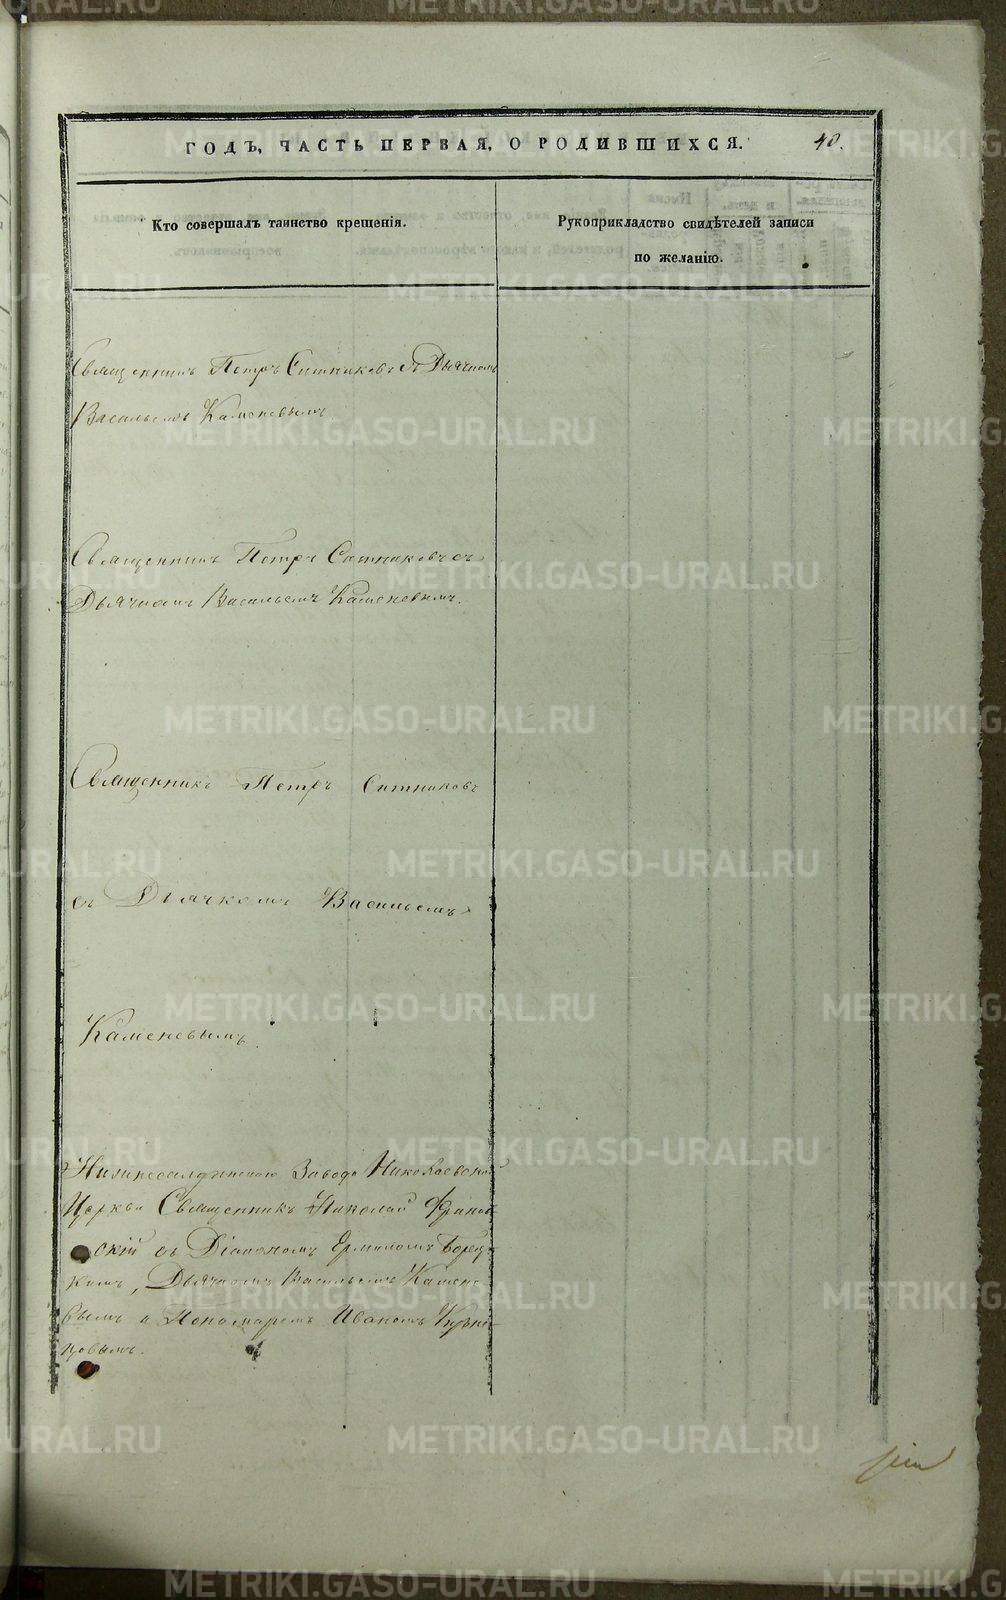 ГОДЪ, ЧАСТЬ ПЕРВАЯ, О РОДИВШИХСЯ.
40.
Кто совершалъ таинство крещенія.
Рукоприкладство свидѣтелей записи
по желанію.
Священникъ Петръ Ситниковъ съ Дьячкомъ
Васильемъ Каменевымъ
Священникъ Петръ Ситниковъ съ
Дьячкомъ Васильемъ Каменевымъ.
Священникъ Петръ Ситниковъ
съ Дьячкомъ Васильемъ
Каменевымъ.
Нижнесалдинскаго Завода Николаевской
Церкви Священникъ Николай
скій съ Діакономъ Ермиломъ
кимъ, Дьячкомъ Васильемъ Камене
вымъ и Пономаремъ Иваномъ Кузне
цовымъ.
METRIKI.GASO-URAL.RU